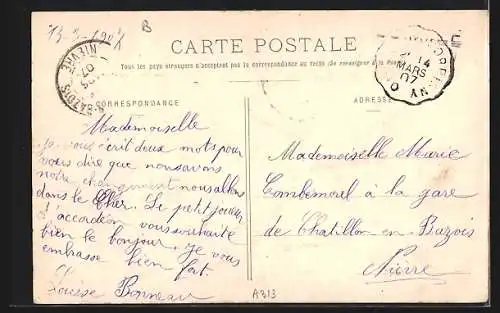 13-3-1907
B
CARTE POSTALE
Tous les pays étrangers n'acceptent pas la correspondance au recto (Se renseigner à la Poste)
CORRESPONDANCE
ADRESSE
14
MARS
07
NIEVRE
07
Mademoiselle
je vous écrit deux mots pour
vous dire que nous avons
notre changement nous allons
dans le Cher. Le petit joueur
d'accordéon vous souhaite
bien le bonjour. Je vous
embrasse bien fort.
Louise Bonneau
Mademoiselle Marie
Combemorel à la gare
de Chatillon en Bazois
Nièvre
A313